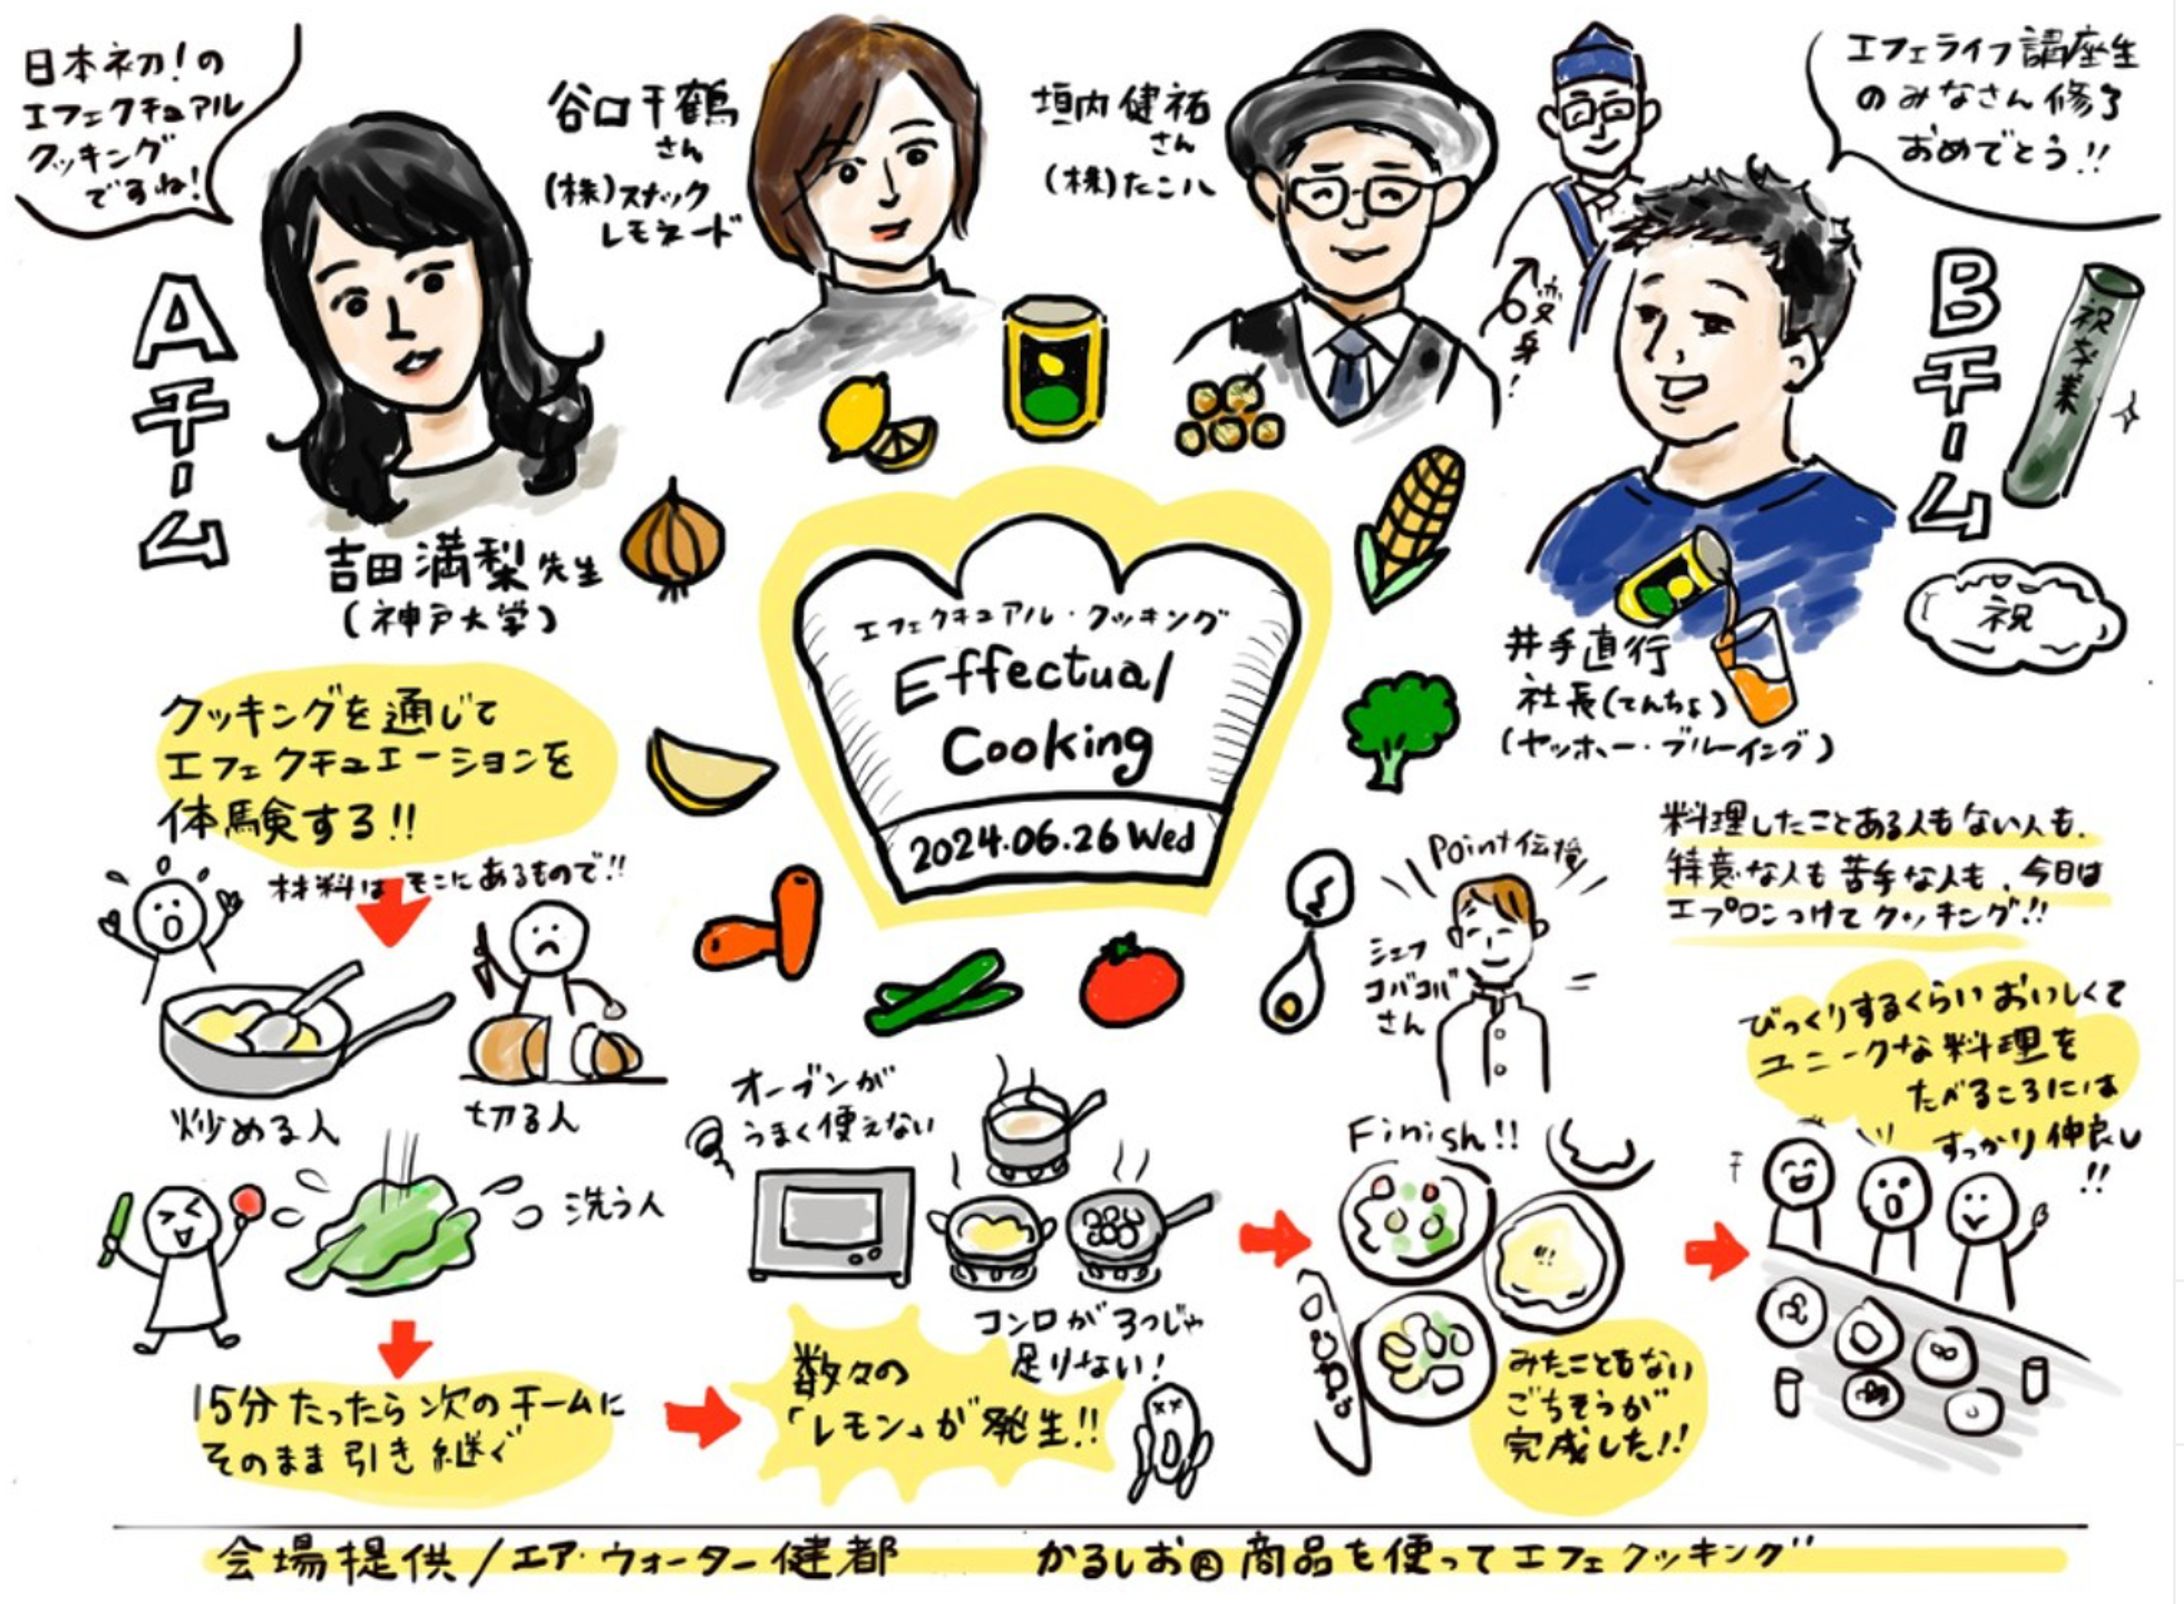 日本初！の
エフェクチュアル
クッキング
ですね！
谷口千鶴
さん
(株)スナック
レモネード
垣内健祐
さん
(株)たこ八
変身！
エフェライフ講座生
のみなさん修了
おめでとう!!
Aチーム
Bチーム
祝卒業
祝
吉田満梨先生
(神戸大学)
井手直行
社長(てんちょ)
(ヤッホー・ブルーイング)
エフェクチュアル・クッキング
Effectual
Cooking
2024.06.26 Wed
クッキングを通じて
エフェクチュエーションを
体験する!!
材料はそこにあるもので!!
炒める人
切る人
洗う人
15分たったら次のチームに
そのまま引き継ぐ
オーブンが
うまく使えない
コンロが3つじゃ
足りない！
数々の
「レモン」が発生!!
Point伝授
シェフ
コバコバ
さん
Finish!!
みたこともない
ごちそうが
完成した!!
料理したことある人もない人も、
得意な人も苦手な人も、今日は
エプロンつけてクッキング!!
びっくりするくらいおいしくて
ユニークな料理を
たべるころには
すっかり仲良し
!!
会場提供/エア・ウォーター健都
かるしお®商品を使ってエフェクッキング